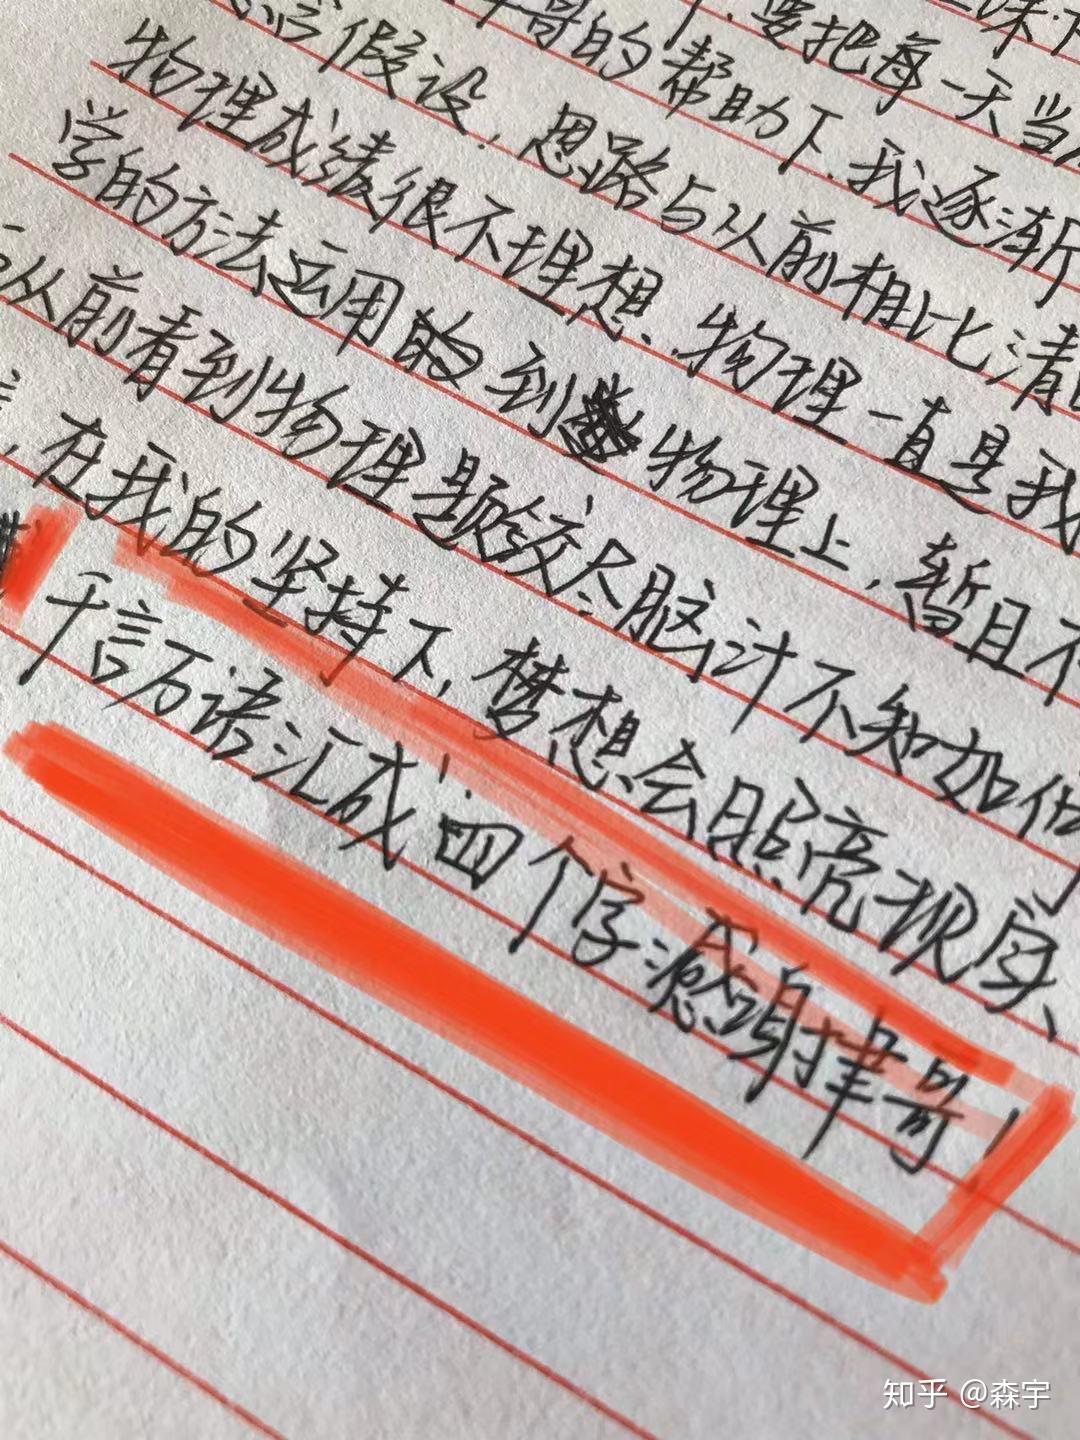 味
要把每一天当
哥的帮助下.我逐渐
假设，思路与从前相比清
物理成绩很不理想.物理一直是我
学的方法运用的到物理上，暂且不
从前看到物理题绞尽脑汁不知如何
，在我的坚持下，梦想会照亮现实、
千言万语汇成四个字:感谢哥！
知乎 @森宇